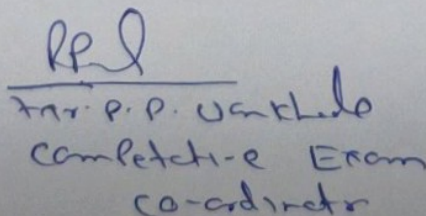 Mr. P. P. Wankhede
Competetive Exam
co-ordinator